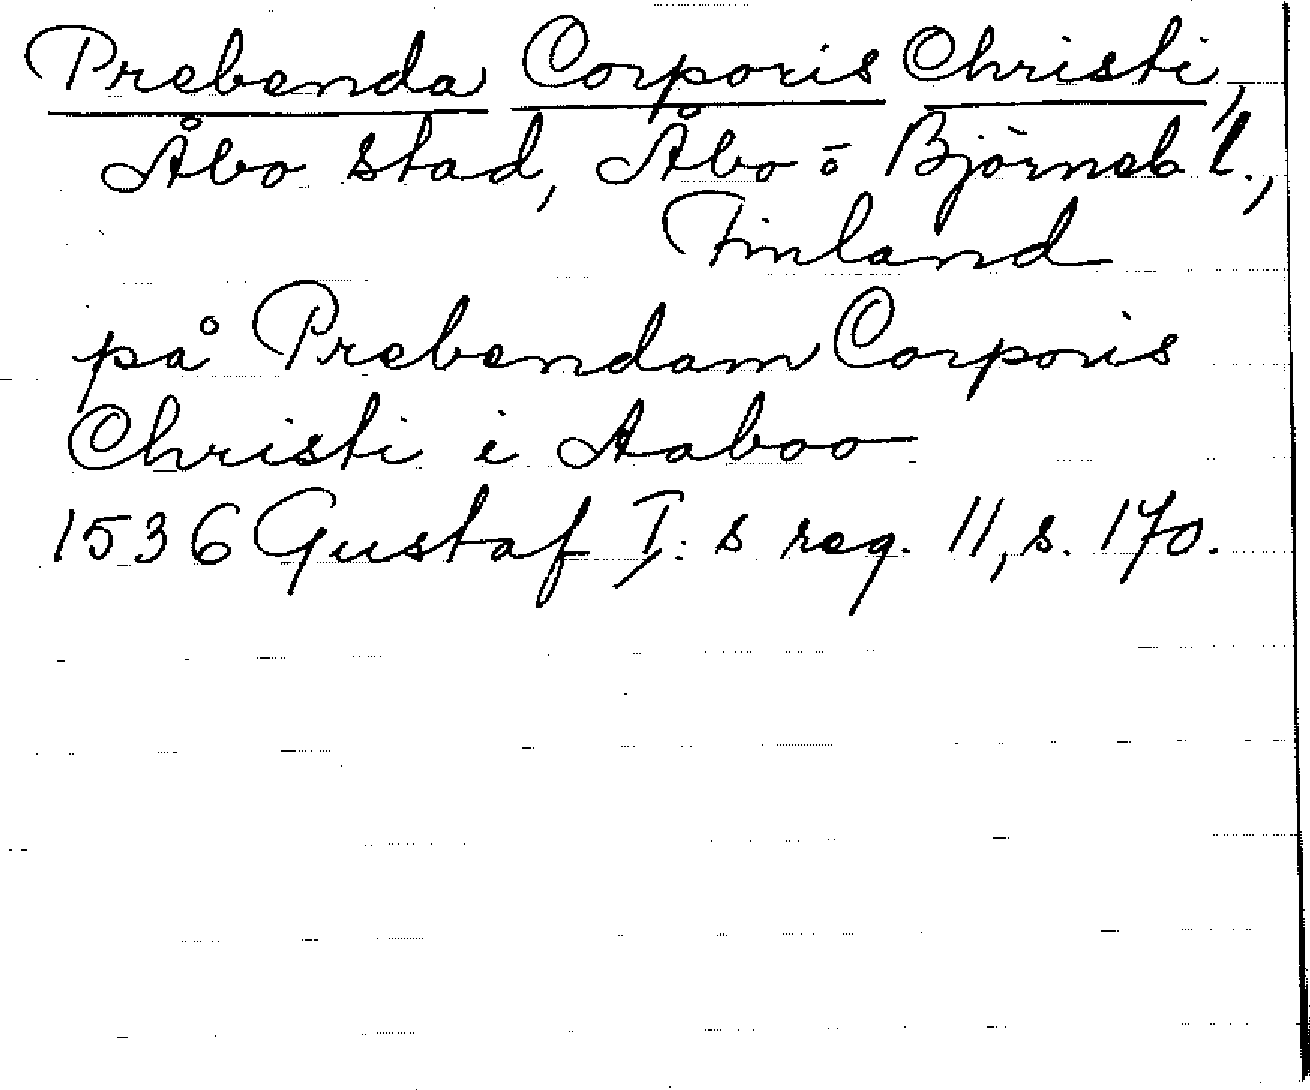 Prebenda Corporis Christi,
Åbo stad, Åbo ō Björneb l.,
Finland
på Prebendam Corporis
Christi i Aaboo
1536 Gustaf I: s reg. 11, s. 170.